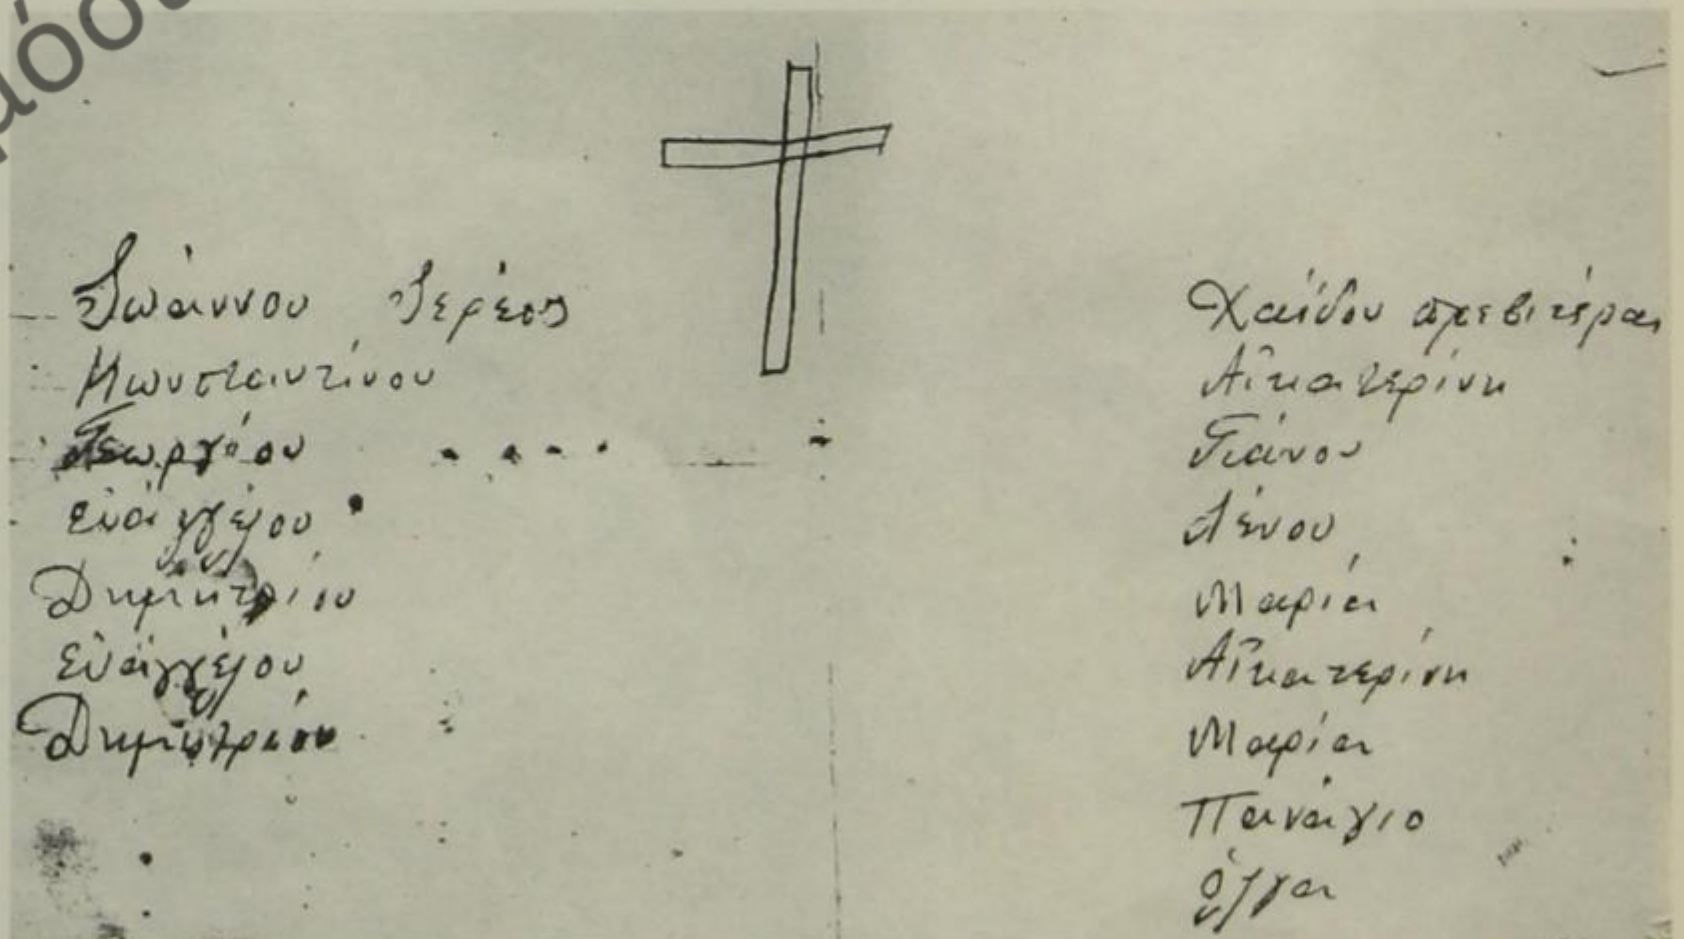 Ἰωάννου Ἱερέος
Κωνσταντίνου
Γεωργίου
Εὐαγγέλου
Δημητρίου
Εὐαγγέλου
Δημητρίου
Χαΐδου πρεβιτέρα
Αἰκατερίνη
Γιάνου
Λένου
Μαρία
Αἰκατερίνη
Μαρία
Πανάγιο
Ὄλγα